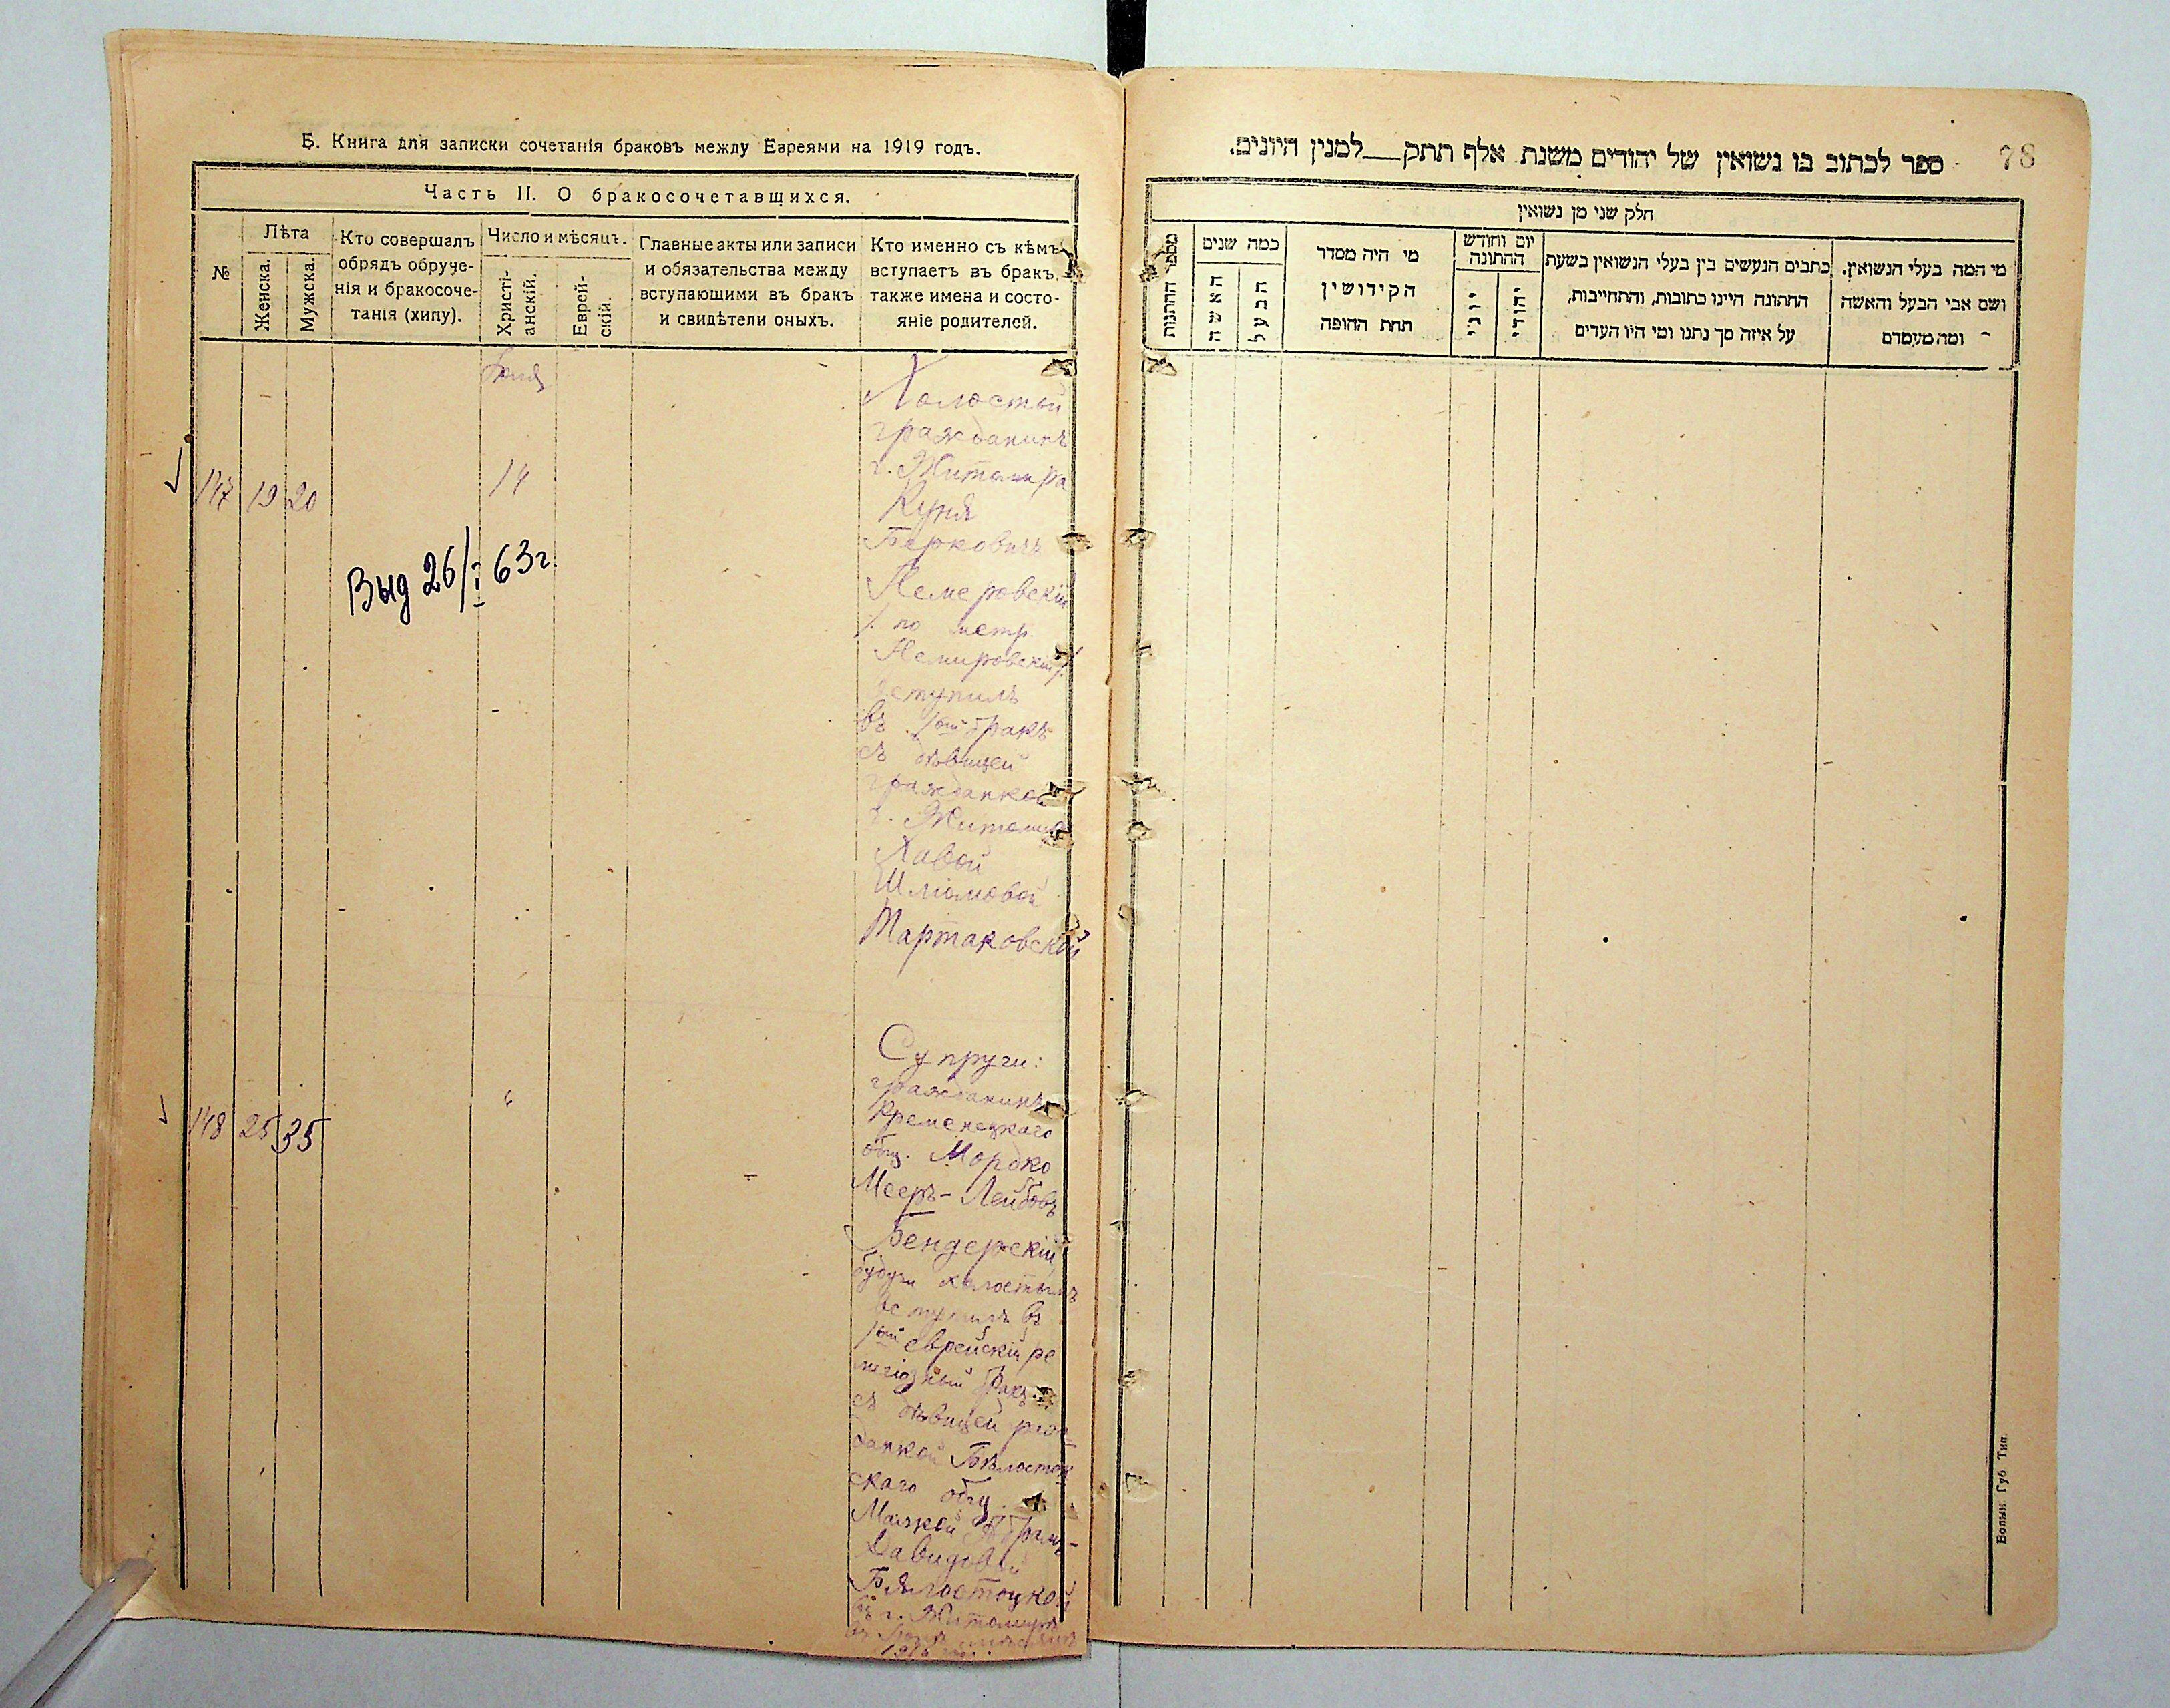 Б. Книга для записки сочетанія браковъ между Евреями на 1919 годъ.
Часть II. О бракосочетавщихся.
№
Лѣта
Женска.
Мужска.
Кто совершалъ
обрядъ обруче-
нія и бракосоче-
танія (хипу).
Число и мѣсяцъ.
Христі-
анскій.
Еврей-
скій.
Главные акты или записи
и обязательства между
вступающими въ бракъ
и свидѣтели оныхъ.
Кто именно съ кѣмъ
вступаетъ въ бракъ,
также имена и состо-
яніе родителей.
147 19 20
14
Выд 26/I 63г.
Холостой
гражданинъ
г. Житомира
Куня
Берковичъ
Немеровскій
/. по метр.
Немировскій /.
вступилъ
въ 1ый бракъ
съ дѣвицей
гражданкой
г. Житомира
Хавой
Шліомовой
Тартаковской
148 25 35
"
Супруги:
гражданинъ
Кременецкаго
общ. Мордко
Мееръ-Лейбовъ
Бендерскій
будучи холостымъ
вступилъ въ
1ый еврейскій ре
лигіозный бракъ
съ дѣвицей граж=
данкой Бѣлосток
скаго общ.
Абрамъ-
Давидовой
Бялостоцкой
въ г. Житомирѣ
78
ספר לכתוב בו נשואין של יהודים משנת אלף תתק__למנין היונים.
חלק שני מן נשואין
מספר החתנות
כמה שנים
האשה
הבעל
מי היה מסדר
הקידושין
תחת החופה
יום וחודש
החתונה
יוני
יהודי
כתבים הנעשים בין בעלי הנשואין בשעת
החתונה היינו כתובות, והתחייבות,
על איזה סך נתנו ומי היו העדים
מי המה בעלי הנשואין.
ושם אבי הבעל והאשה
ומה מעמדם
Волын. Губ. Тип.